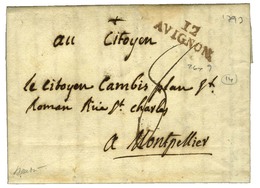 1793
12
AVIGNON
au Citoyen
le citoyen Cambis plan St
Roman Rue St charles
a Montpellier